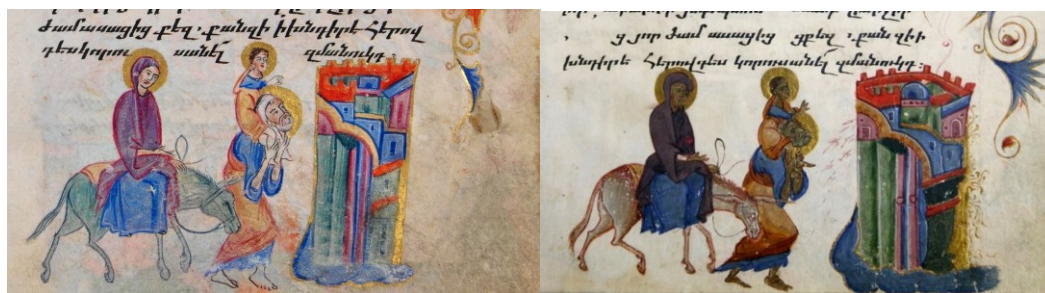 ժամ ասացից քեզ․ քանզի ի խնդիր է Հերով
դես կորու սանել զմանուկդ
ց յոր ժամ ասացից ցքեզ․ քանզի ի
խնդիր է Հերովդես կորուսանել զմանուկդ։